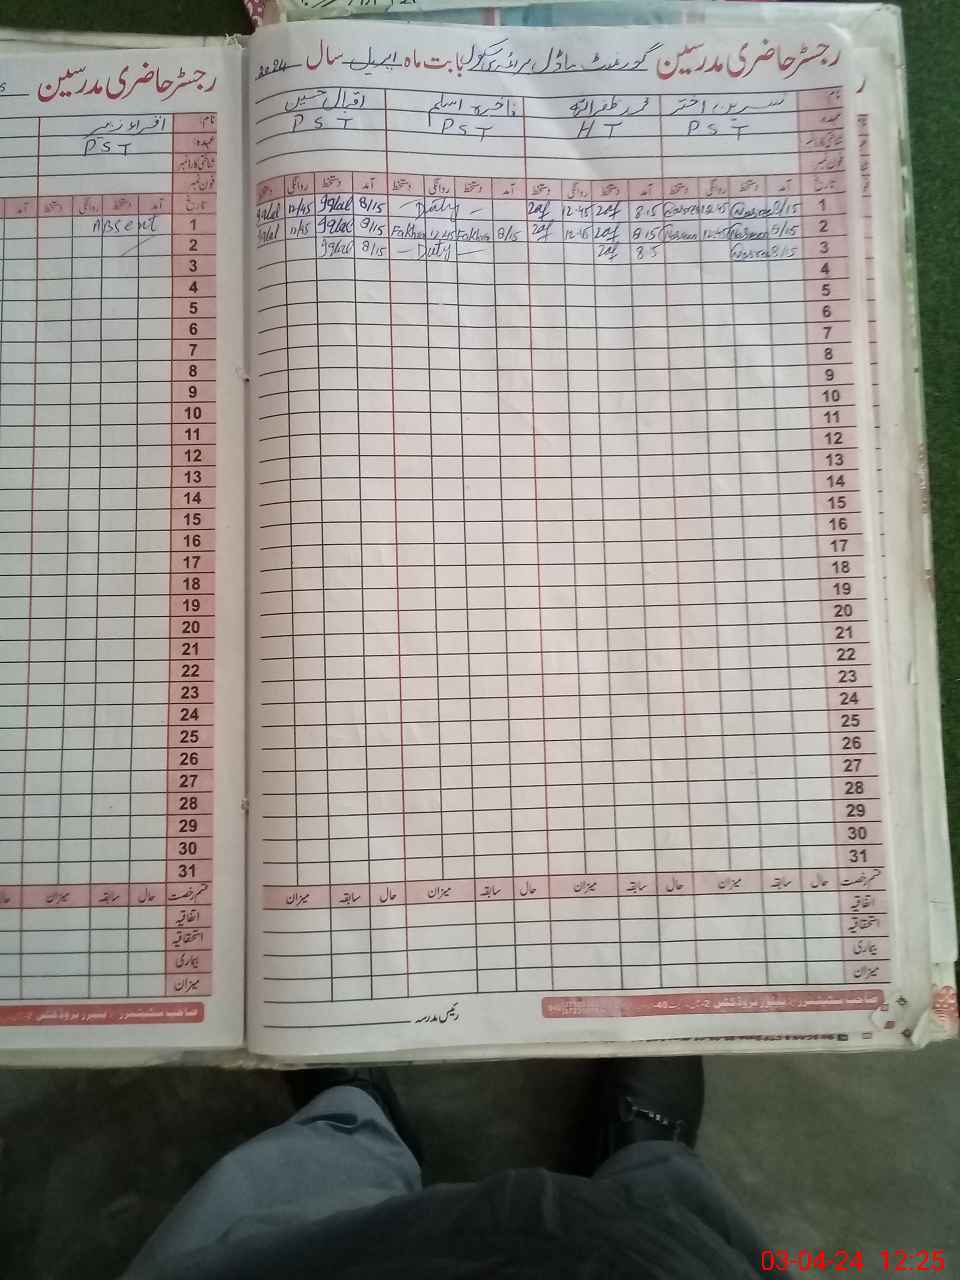 رجسٹر حاضری مدرسین گورنمنٹ ماڈل پرائمری سکول بابت ماہ اپریل سال 2024
نام: نسرین اختر محمد ظفر اللہ فاخرہ اسلم اقبال حسین
عہدہ: PST HT PST PST
شناختی کارڈ نمبر
فون نمبر
تاریخ آمد دستخط روانگی دستخط آمد دستخط روانگی دستخط آمد دستخط روانگی دستخط آمد دستخط روانگی دستخط
1 8/15 Nasreen 12.45 Nasreen 8.15 Zaf 12.45 Zaf — Duty — 8/15 Iqbal 12/45 Iqbal
2 8/15 Nasreen 12.45 Nasreen 8.15 Zaf 12.45 Zaf 8/15 Fakhra 12.45 Fakhra 8/15 Iqbal 12/45 Iqbal
3 8/15 Nasreen 8.5 Zaf — Duty — 8/15 Iqbal
4
5
6
7
8
9
10
11
12
13
14
15
16
17
18
19
20
21
22
23
24
25
26
27
28
29
30
31
قسم رخصت حال سابقہ میزان حال سابقہ میزان حال سابقہ میزان حال سابقہ میزان
اتفاقیہ
استحقاقیہ
بیماری
میزان
رئیس مدرسہ
رجسٹر حاضری مدرسین
نام:
عہدہ: PST
شناختی کارڈ نمبر
فون نمبر
تاریخ آمد دستخط روانگی دستخط آمد
1 Absent
2
3
4
5
6
7
8
9
10
11
12
13
14
15
16
17
18
19
20
21
22
23
24
25
26
27
28
29
30
31
قسم رخصت حال سابقہ میزان حال
اتفاقیہ
استحقاقیہ
بیماری
میزان
03-04-24 12:25